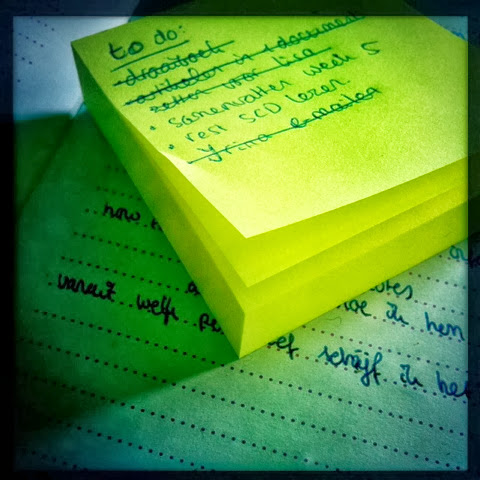 to do:
draaiboek
artikelen in 1 document
zetten voor lisa
• samenvatten week 5
• rest SCD lezen.
Yrina e-mailen
how
vanuit welk
hoe ik hem
schrijf ik he